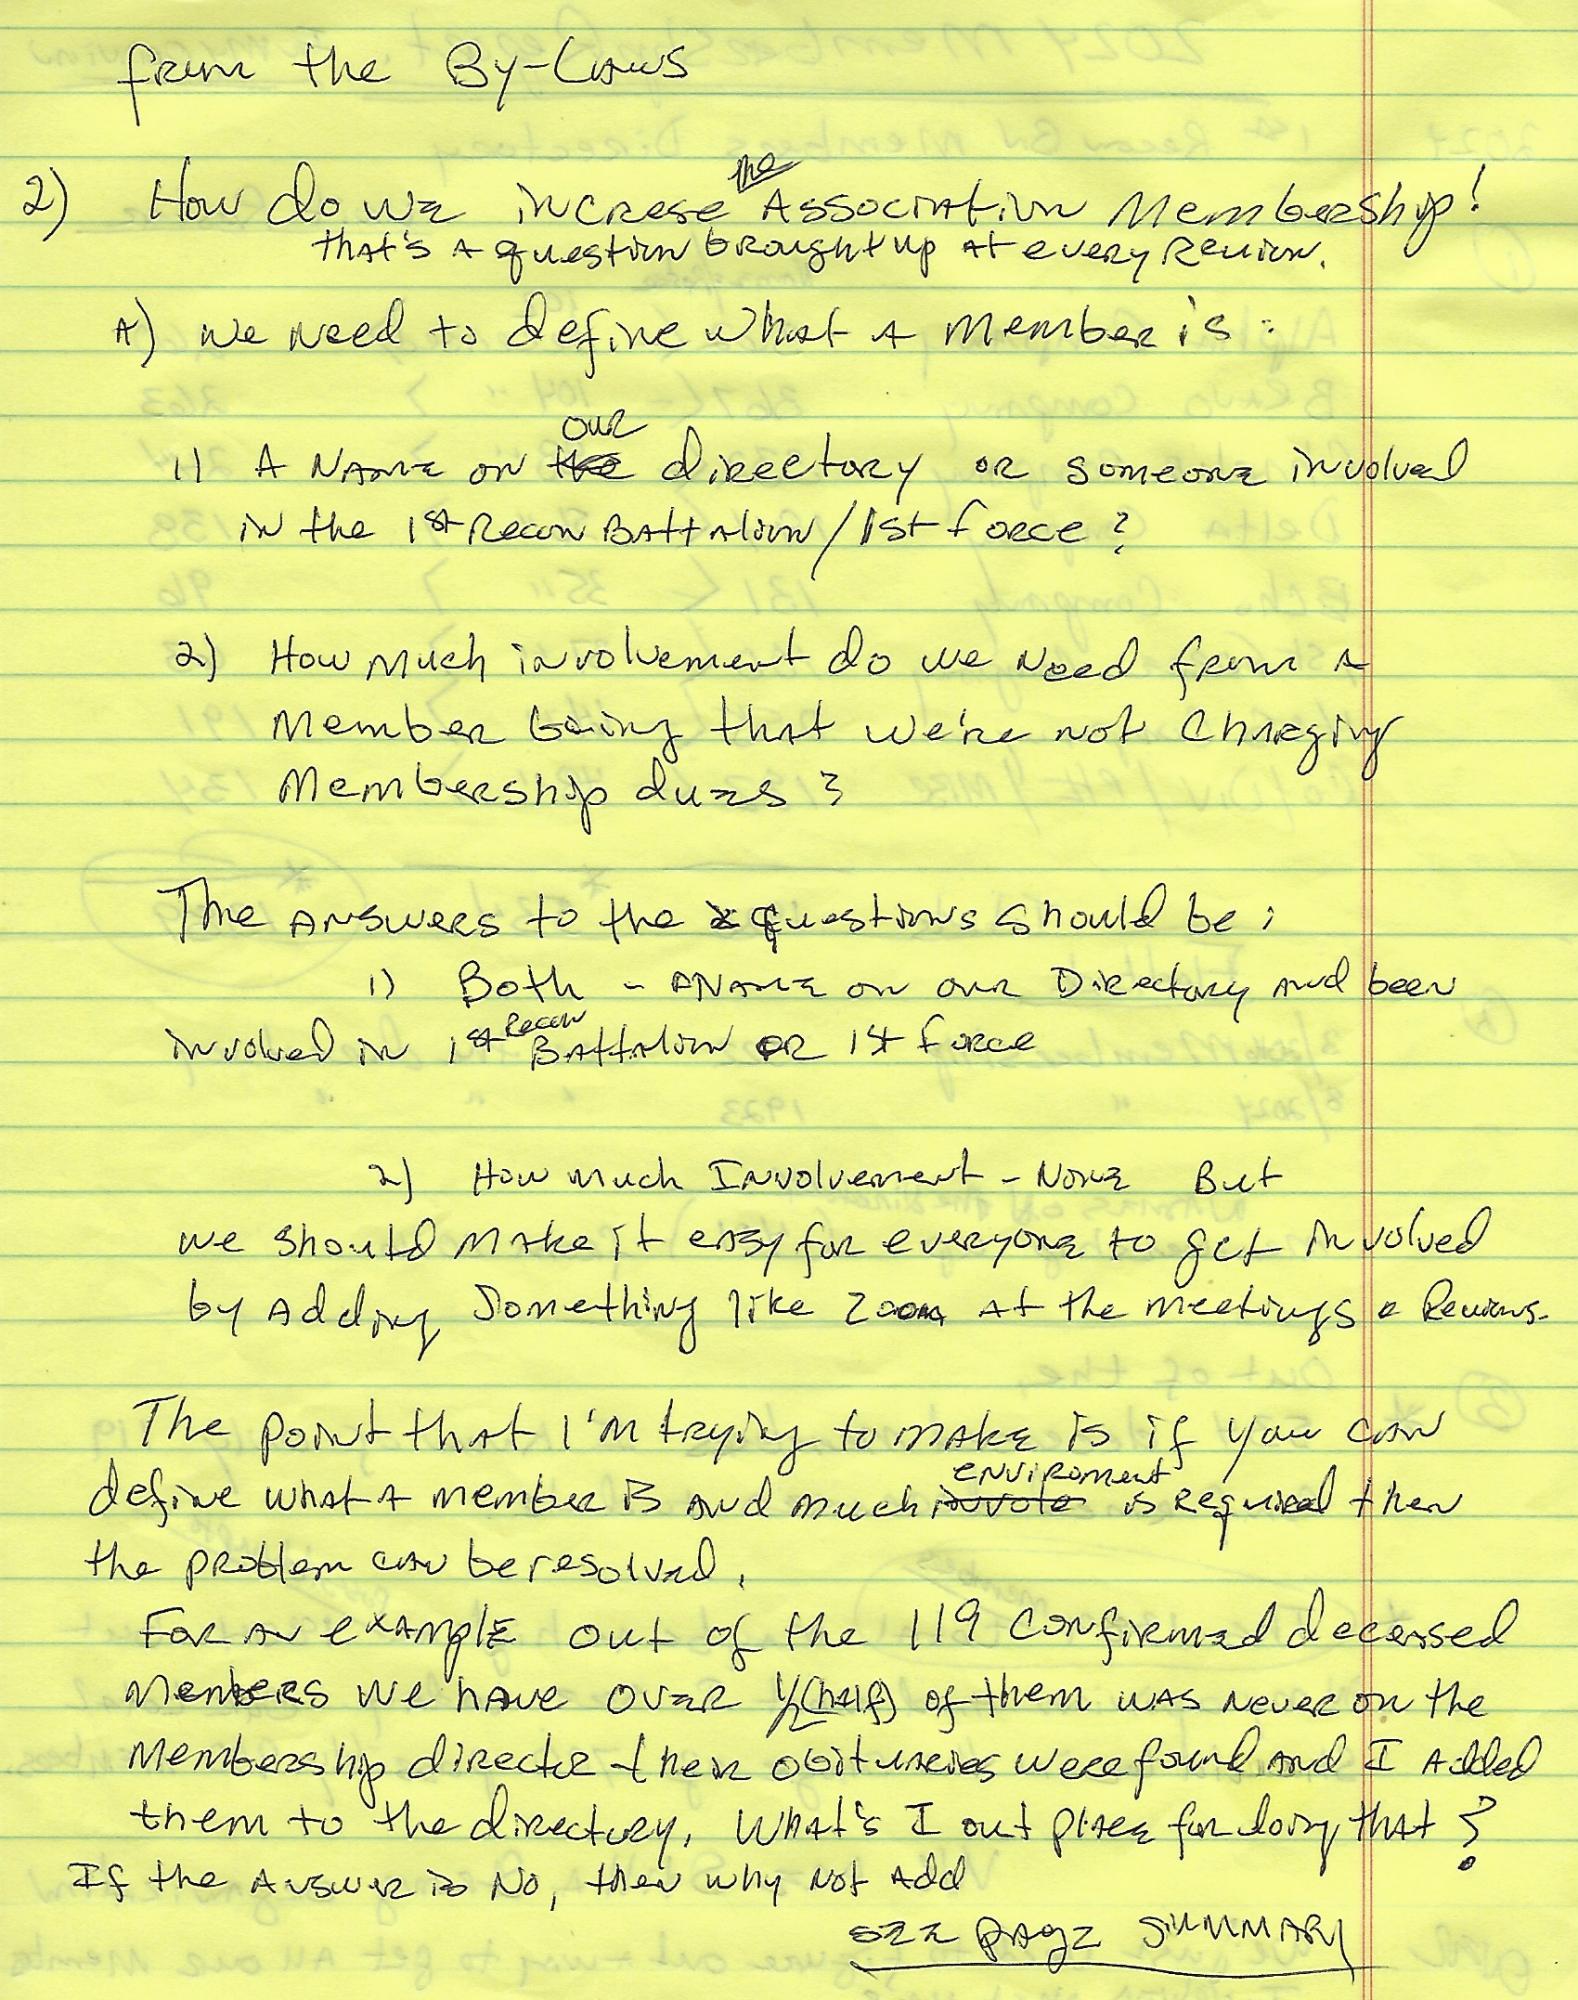 from the By-Laws
2) How do we increse the Association Membership!
that's a question brought up at every Reunion.
A) we need to define what a member is:
1) A Name on our directory or someone involved
in the 1st Recon Battalion/1st force?
2) How much involvement do we need from a
member being that we're not charging
membership dues?
The answers to the questions should be:
1) Both - A Name on our Directory and been
involved in 1st Recon Battalion or 1st force
2) How much Involvement - None But
we should make it easy for everyone to get involved
by adding something like Zoom at the meetings & Reunions.
The point that I'm trying to make is if you can
define what a member is and much enviroment is required then
the problem can be resolved.
For an example out of the 119 confirmed deceased
members we have over 1/2 (half) of them was never on the
membership director their obituaries were found and I added
them to the directory. What's I out place for doing that?
If the answer is No, then why not add
see page summary